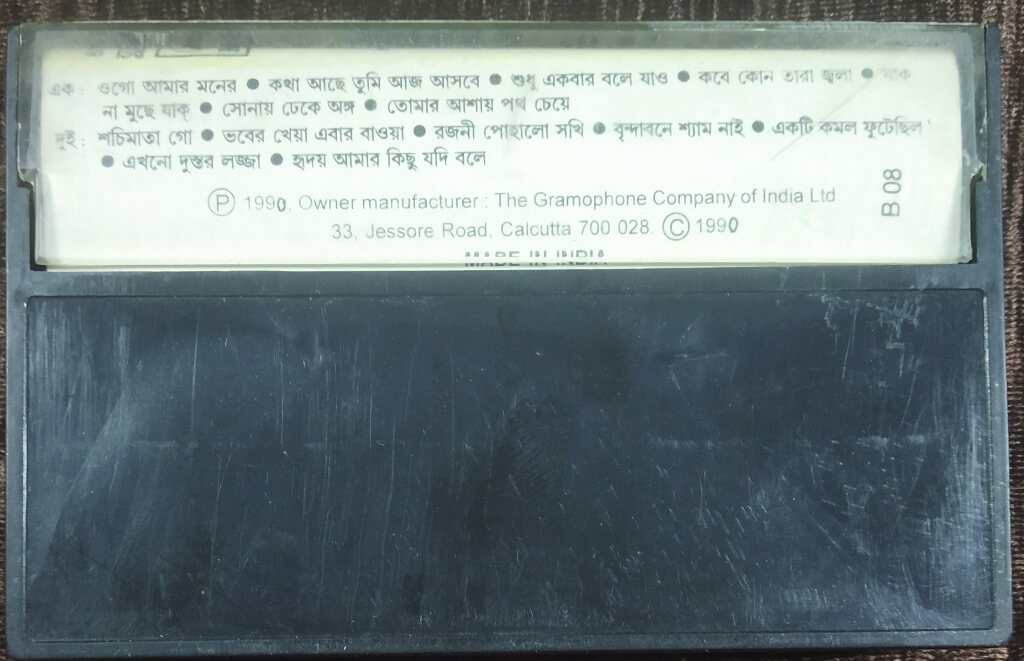 এক : ওগো আমার মনের ● কথা আছে তুমি আজ আসবে ● শুধু একবার বলে যাও ● কবে কোন তারা জ্বলা ● যাক
না মুছে যাক্ ● সোনায় ঢেকে অঙ্গ ● তোমার আশায় পথ চেয়ে
দুই : শচিমাতা গো ● ভবের খেয়া এবার বাওয়া ● রজনী পোহালো সখি ● বৃন্দাবনে শ্যাম নাই ● একটি কমল ফুটেছিল
● এখনো দুস্তর লজ্জা ● হৃদয় আমার কিছু যদি বলে
Ⓟ 1990, Owner manufacturer : The Gramophone Company of India Ltd
33, Jessore Road, Calcutta 700 028. Ⓒ 1990
MADE IN INDIA
B.08